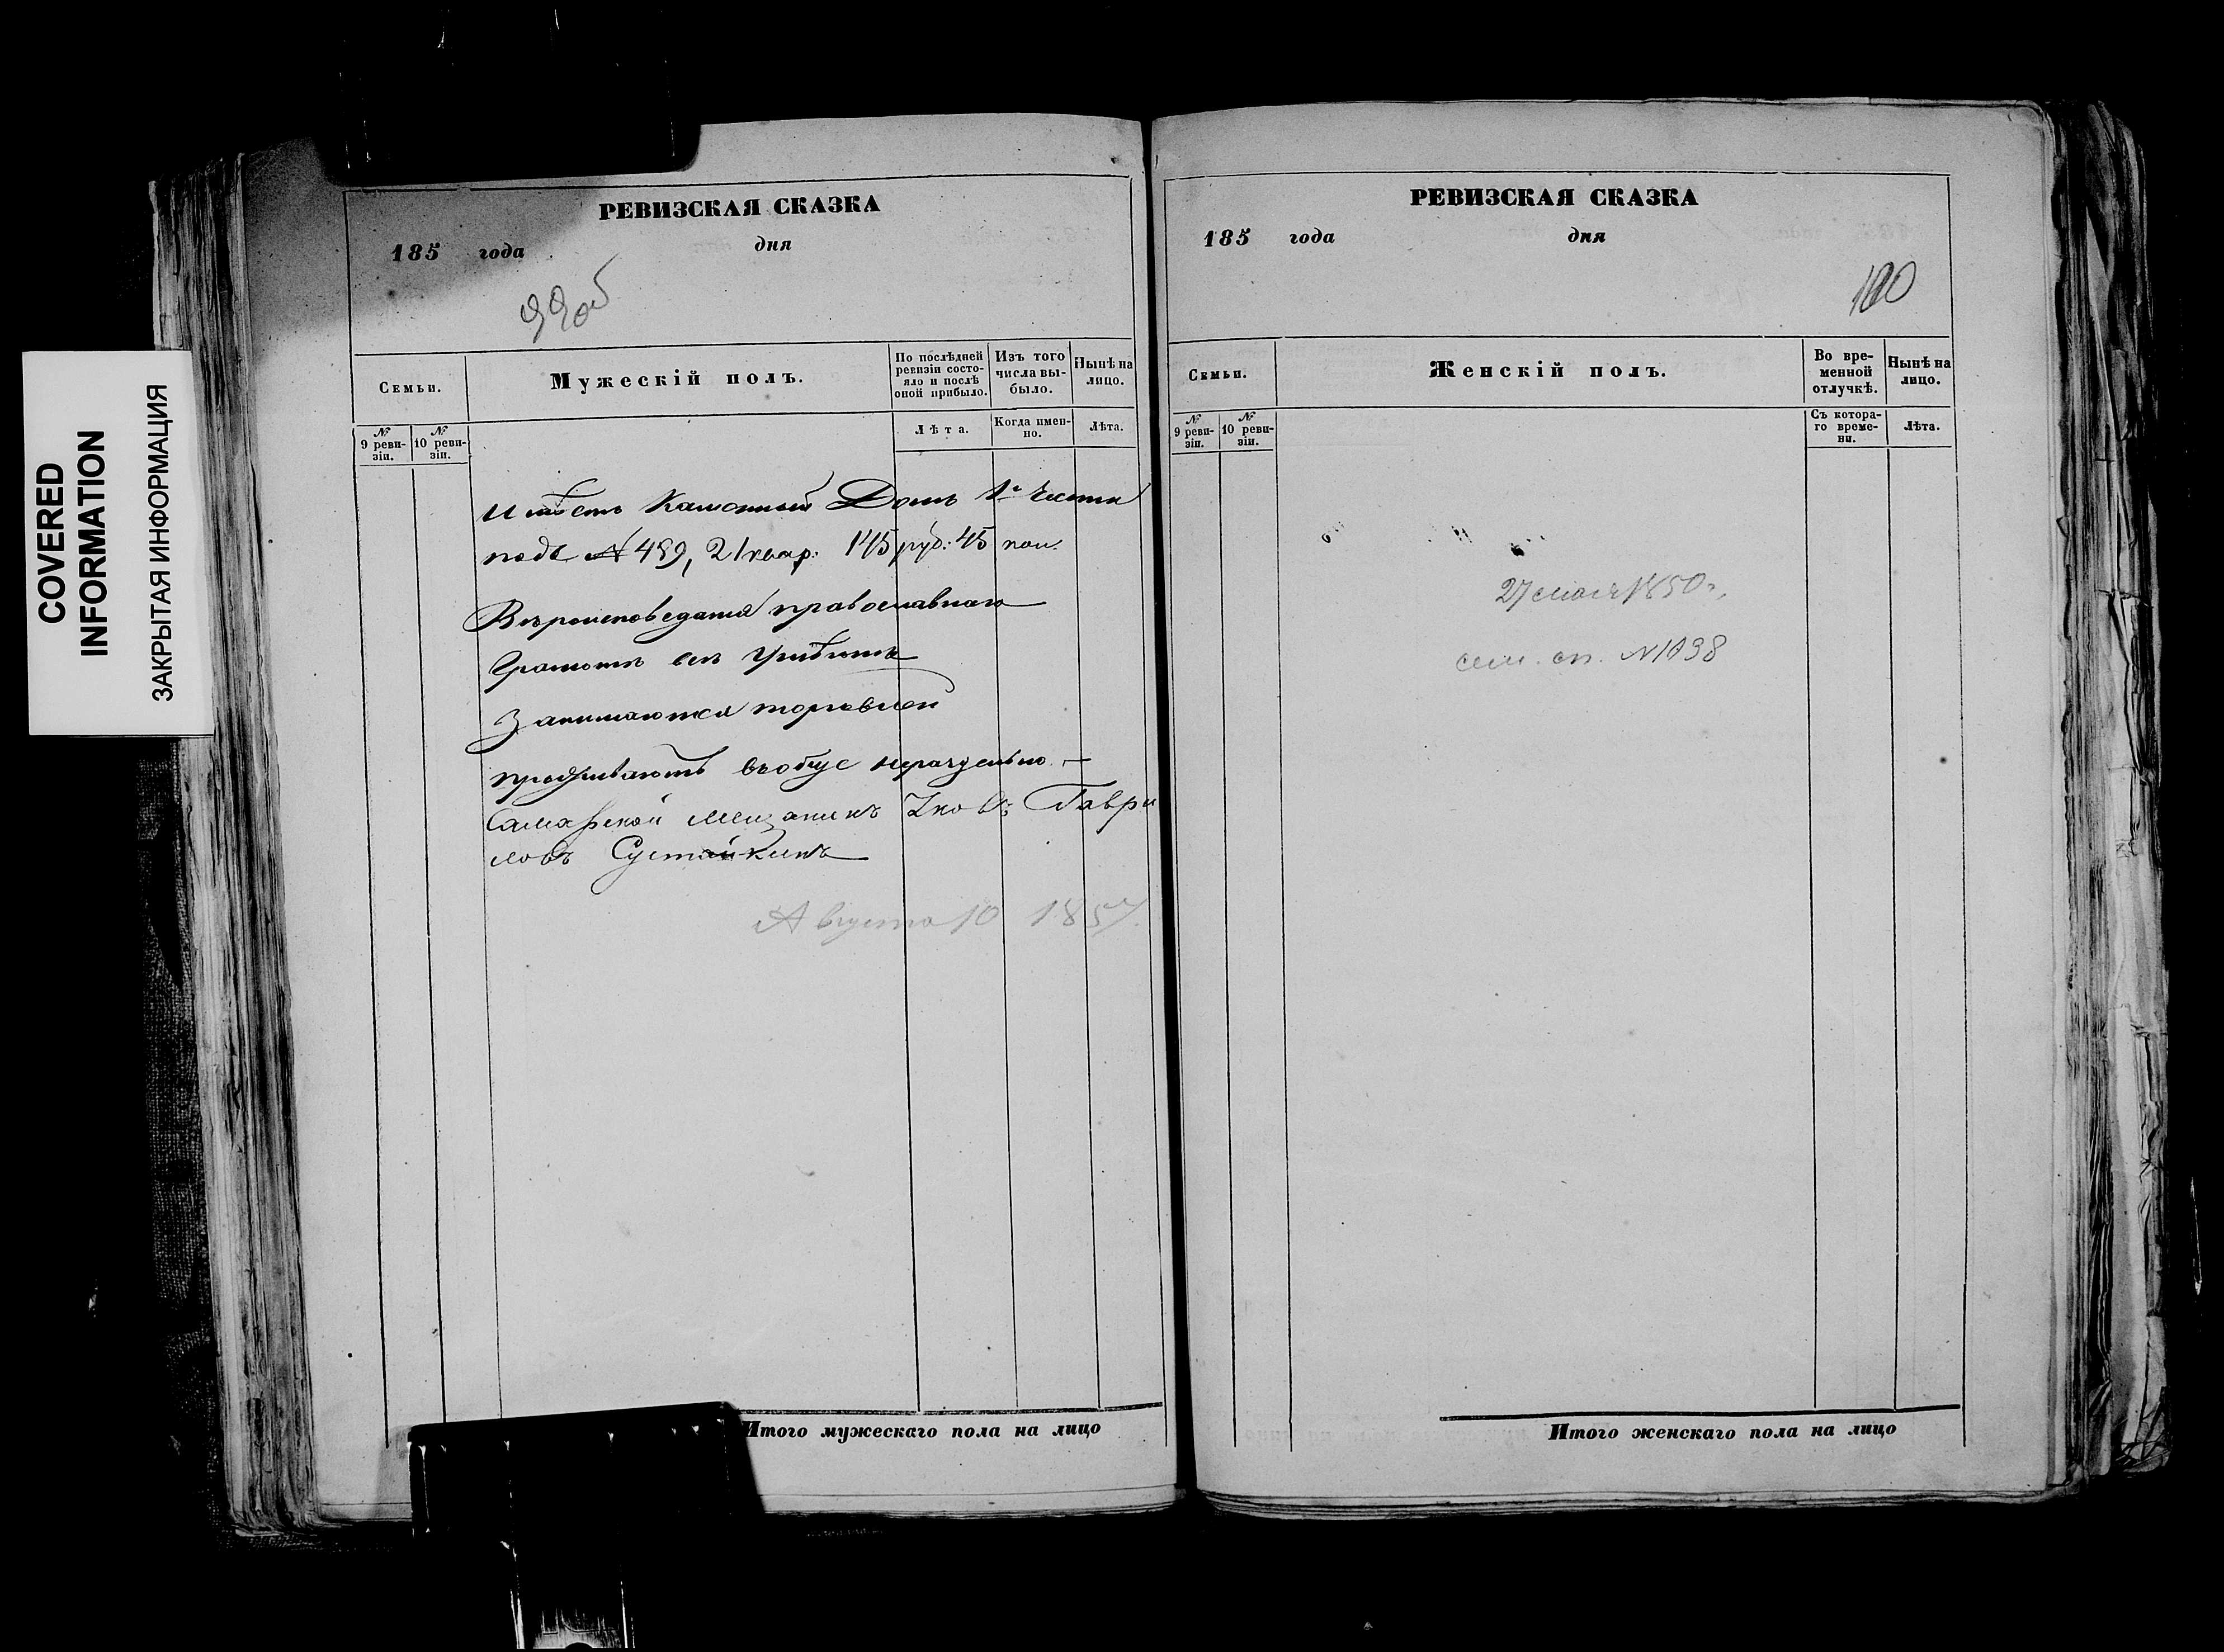 COVERED
INFORMATION
ЗАКРЫТАЯ ИНФОРМАЦИЯ
РЕВИЗСКАЯ СКАЗКА
185 года дня
99об
Семьи.
Мужескій полъ.
По послѣдней ревизіи состояло и послѣ оной прибыло.
Изъ того числа выбыло.
Нынѣ на лицо.
№ 9 ревизіи.
№ 10 ревизіи.
Лѣта.
Когда именно.
Лѣта.
Имѣетъ Каменный Домъ 1й Части
подъ № 459, 21 квар: 145 руб: 45 коп.
Вѣроисповеданія православнаго
Грамотѣ всѣ Умѣютъ
Занимаются торговлей
проживаютъ въобще нераздельно —
Самарской мещанинъ Яковъ Гаври
ловъ Сустайкинъ
Августа 10 1857.
РЕВИЗСКАЯ СКАЗКА
185 года дня
100
Семьи.
Женскій полъ.
Во временной отлучкѣ.
Нынѣ на лицо.
№ 9 ревизіи.
№ 10 ревизіи.
Съ котораго времени.
Лѣта.
27 мая 1850 г.
сем. сп. № 1038
Итого мужескаго пола на лицо
Итого женскаго пола на лицо